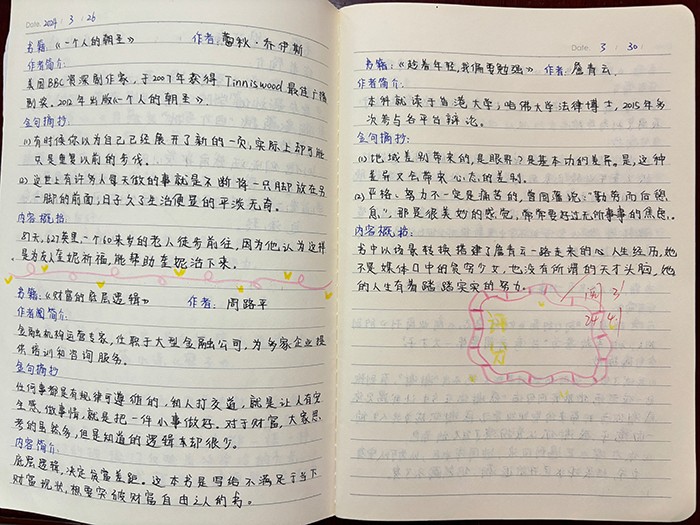 Date. 2024 / 3 / 26
书籍:《一个人的朝圣》 作者:蕾秋·乔伊斯
作者简介:
美国BBC资深剧作家,于2007年获得 Tinniswood 最佳广播
剧奖。2012年出版《一个人的朝圣》
金句摘抄:
(1)有时候你以为自己已经展开了新的一页,实际上却可能
只是重复以前的步伐。
(2)这世上有许多人每天做的事就是不断将一只脚放在另
一脚的前面,日子久了生活便显的平淡无奇。
内容概括:
87天,627英里,一个60来岁的老人徒步前往,因为他认为这样
是为友人奎妮祈福,能帮助奎妮治下来。
书籍:《财富的底层逻辑》 作者:周路平
作者简介:
金融机构运营专家,任职于大型金融公司,为多家企业提
供培训和咨询服务。
金句摘抄
任何事都是有规律可遵循的,和人打交道,就是让人有完
生感,做事情,就是把一件小事做好。对于财富,大家思
考的虽然多,但是知道的逻辑却很少。
内容简介:
底层逻辑,决定贫富差距。这本书是写给不满足于当下
财富现状,想要突破财富自由之人的书。
Date. 3 / 30
书籍:《趁着年轻,我偏要勉强》 作者:詹青云
作者简介:
本科就读于香港大学;哈佛大学法律博士,2015年多
次参与各平台辩论。
金句摘抄:
(1)地域差别带来的,是眼界?是基本功的差异。是,这种
差异又会带来心态的差别。
(2)严格、努力不一定是痛苦的,曾国藩说:"勤劳而后憩
息",那是很美妙的感觉,常常要好过无所事事的焦虑。
内容概括:
书中以场景转换搭建了詹青云一路走来的心人生经历,她
不是媒体口中的贫穷少女,也没有所谓的天才头脑,她
的人生有着踏踏实实的努力。